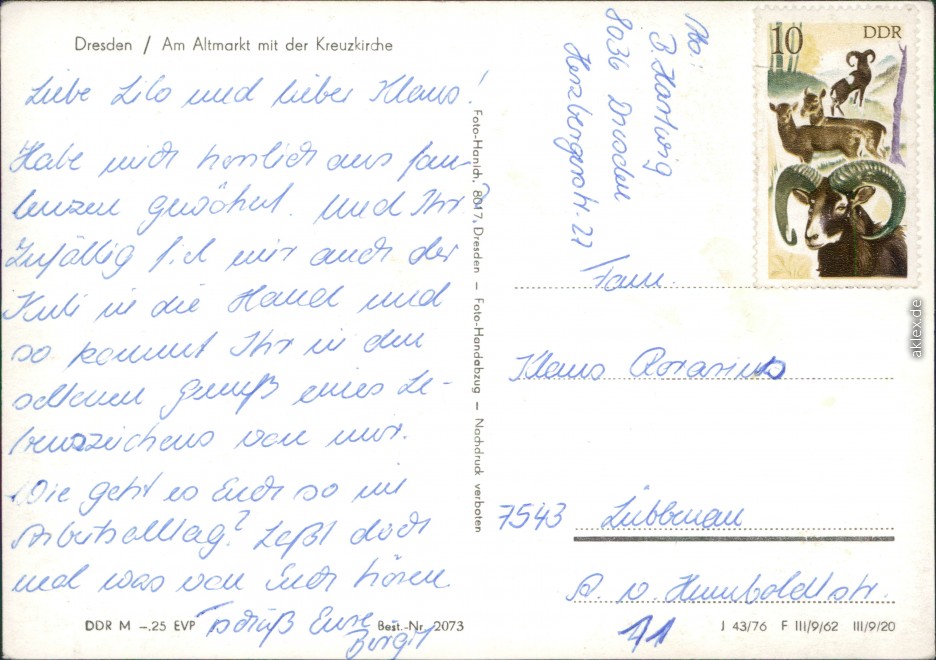 Dresden / Am Altmarkt mit der Kreuzkirche
Liebe Lilo und lieber Klaus!
Habe mich herrlich ans fau-
lenzen gewöhnt. Und Ihr?
Zufällig fiel mir auch der
Kuli in die Hand und
so kommt Ihr in den
seltenen Genuß eines Le-
benszeichens von mir.
Wie geht es Euch so im
Arbeitsalltag? Laßt doch
mal was von Euch hören.
Tschüß Eure
Birgit
DDR M –.25 EVP Best.-Nr. 2073
Foto-Hanich, 8017, Dresden – Foto-Handabzug – Nachdruck verboten
B. Hartwig
8036 Dresden
Herzbergerstr. 27
10 DDR
Fam.
Klaus Rorarius
7543 Lübbenau
A. v. Humboldtstr.
J 43/76 F III/9/62 III/9/20
aklex.de